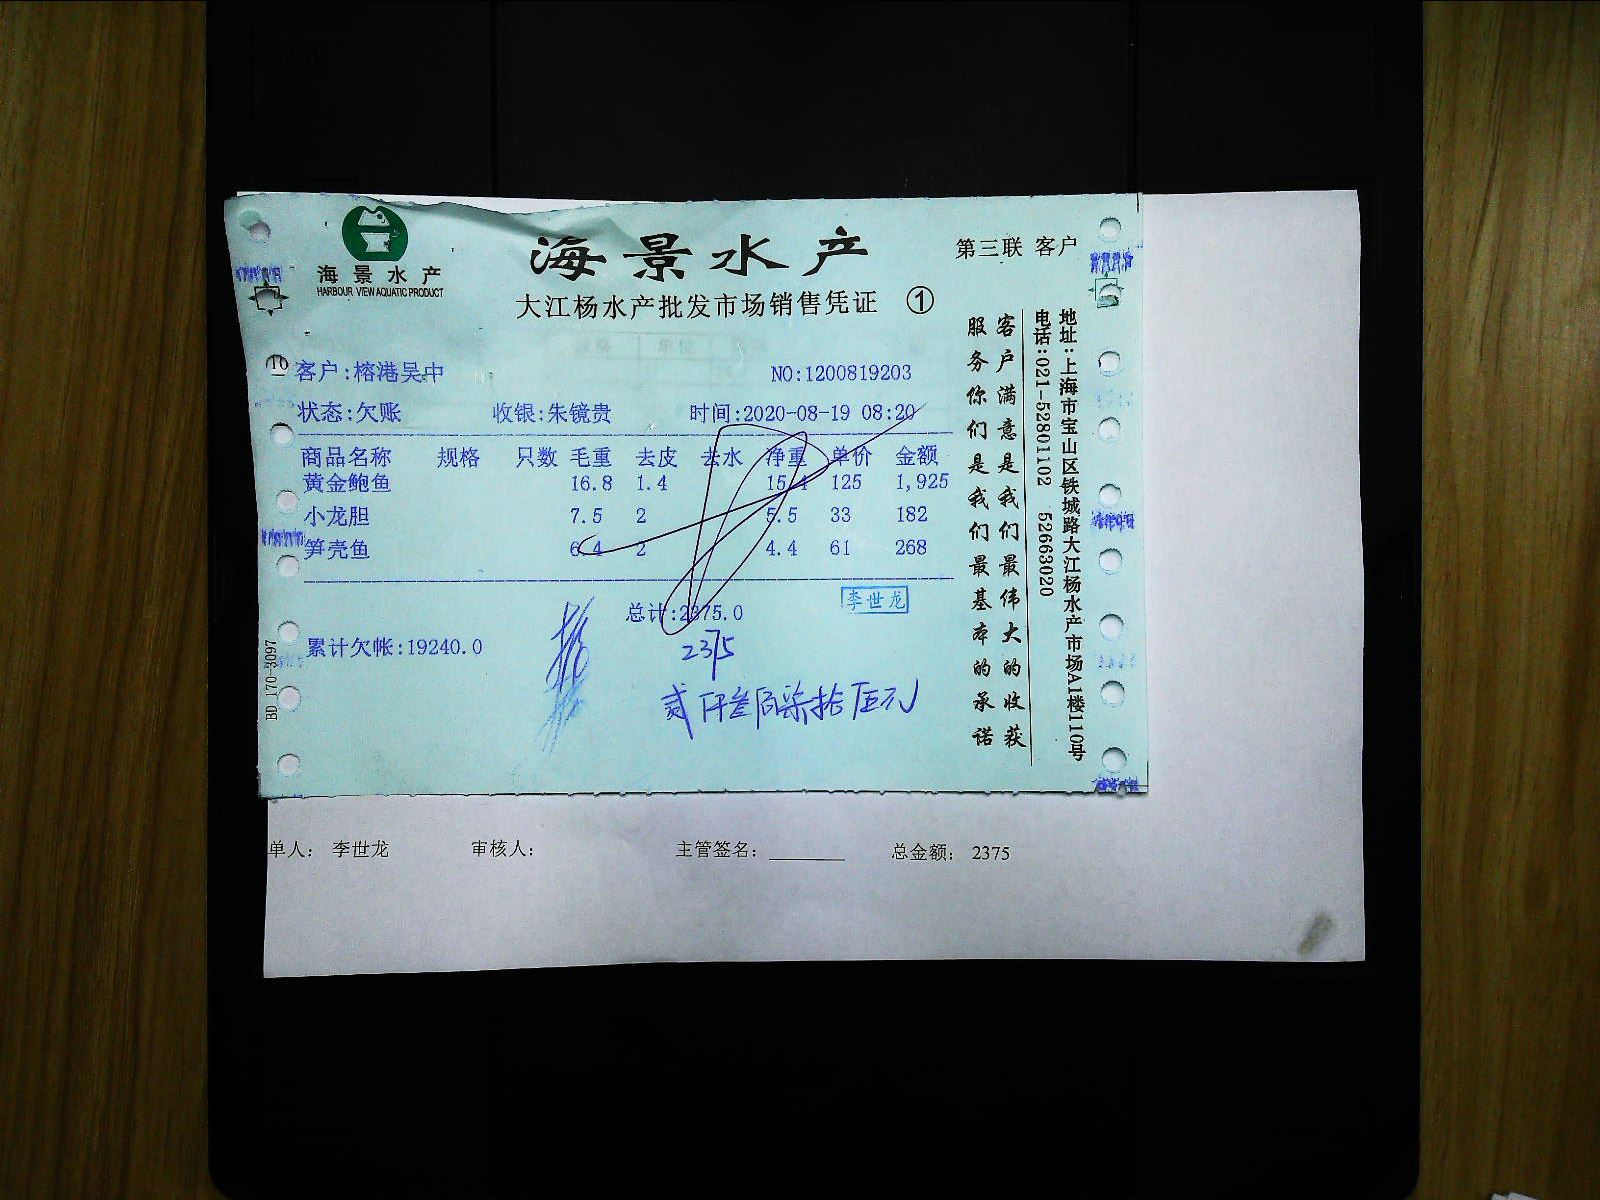 海景水产
HARBOUR VIEW AQUATIC PRODUCT
海景水产
第三联 客户
大江杨水产批发市场销售凭证 ①
10
客户:榕港吴中 NO:1200819203
状态:欠账 收银:朱镜贵 时间:2020-08-19 08:20
商品名称 规格 只数 毛重 去皮 去水 净重 单价 金额
黄金鲍鱼 16.8 1.4 15.4 125 1,925
小龙胆 7.5 2 5.5 33 182
笋壳鱼 6.4 2 4.4 61 268
总计:2375.0
李世龙
累计欠帐:19240.0
2375
贰仟叁佰柒拾伍元
BD 170-3097
客户满意是我们最伟大的收获
服务你们是我们最基本的承诺
地址:上海市宝山区铁城路大江杨水产市场A1楼110号
电话:021-52801102 52663020
单人: 李世龙 审核人: 主管签名: 总金额: 2375